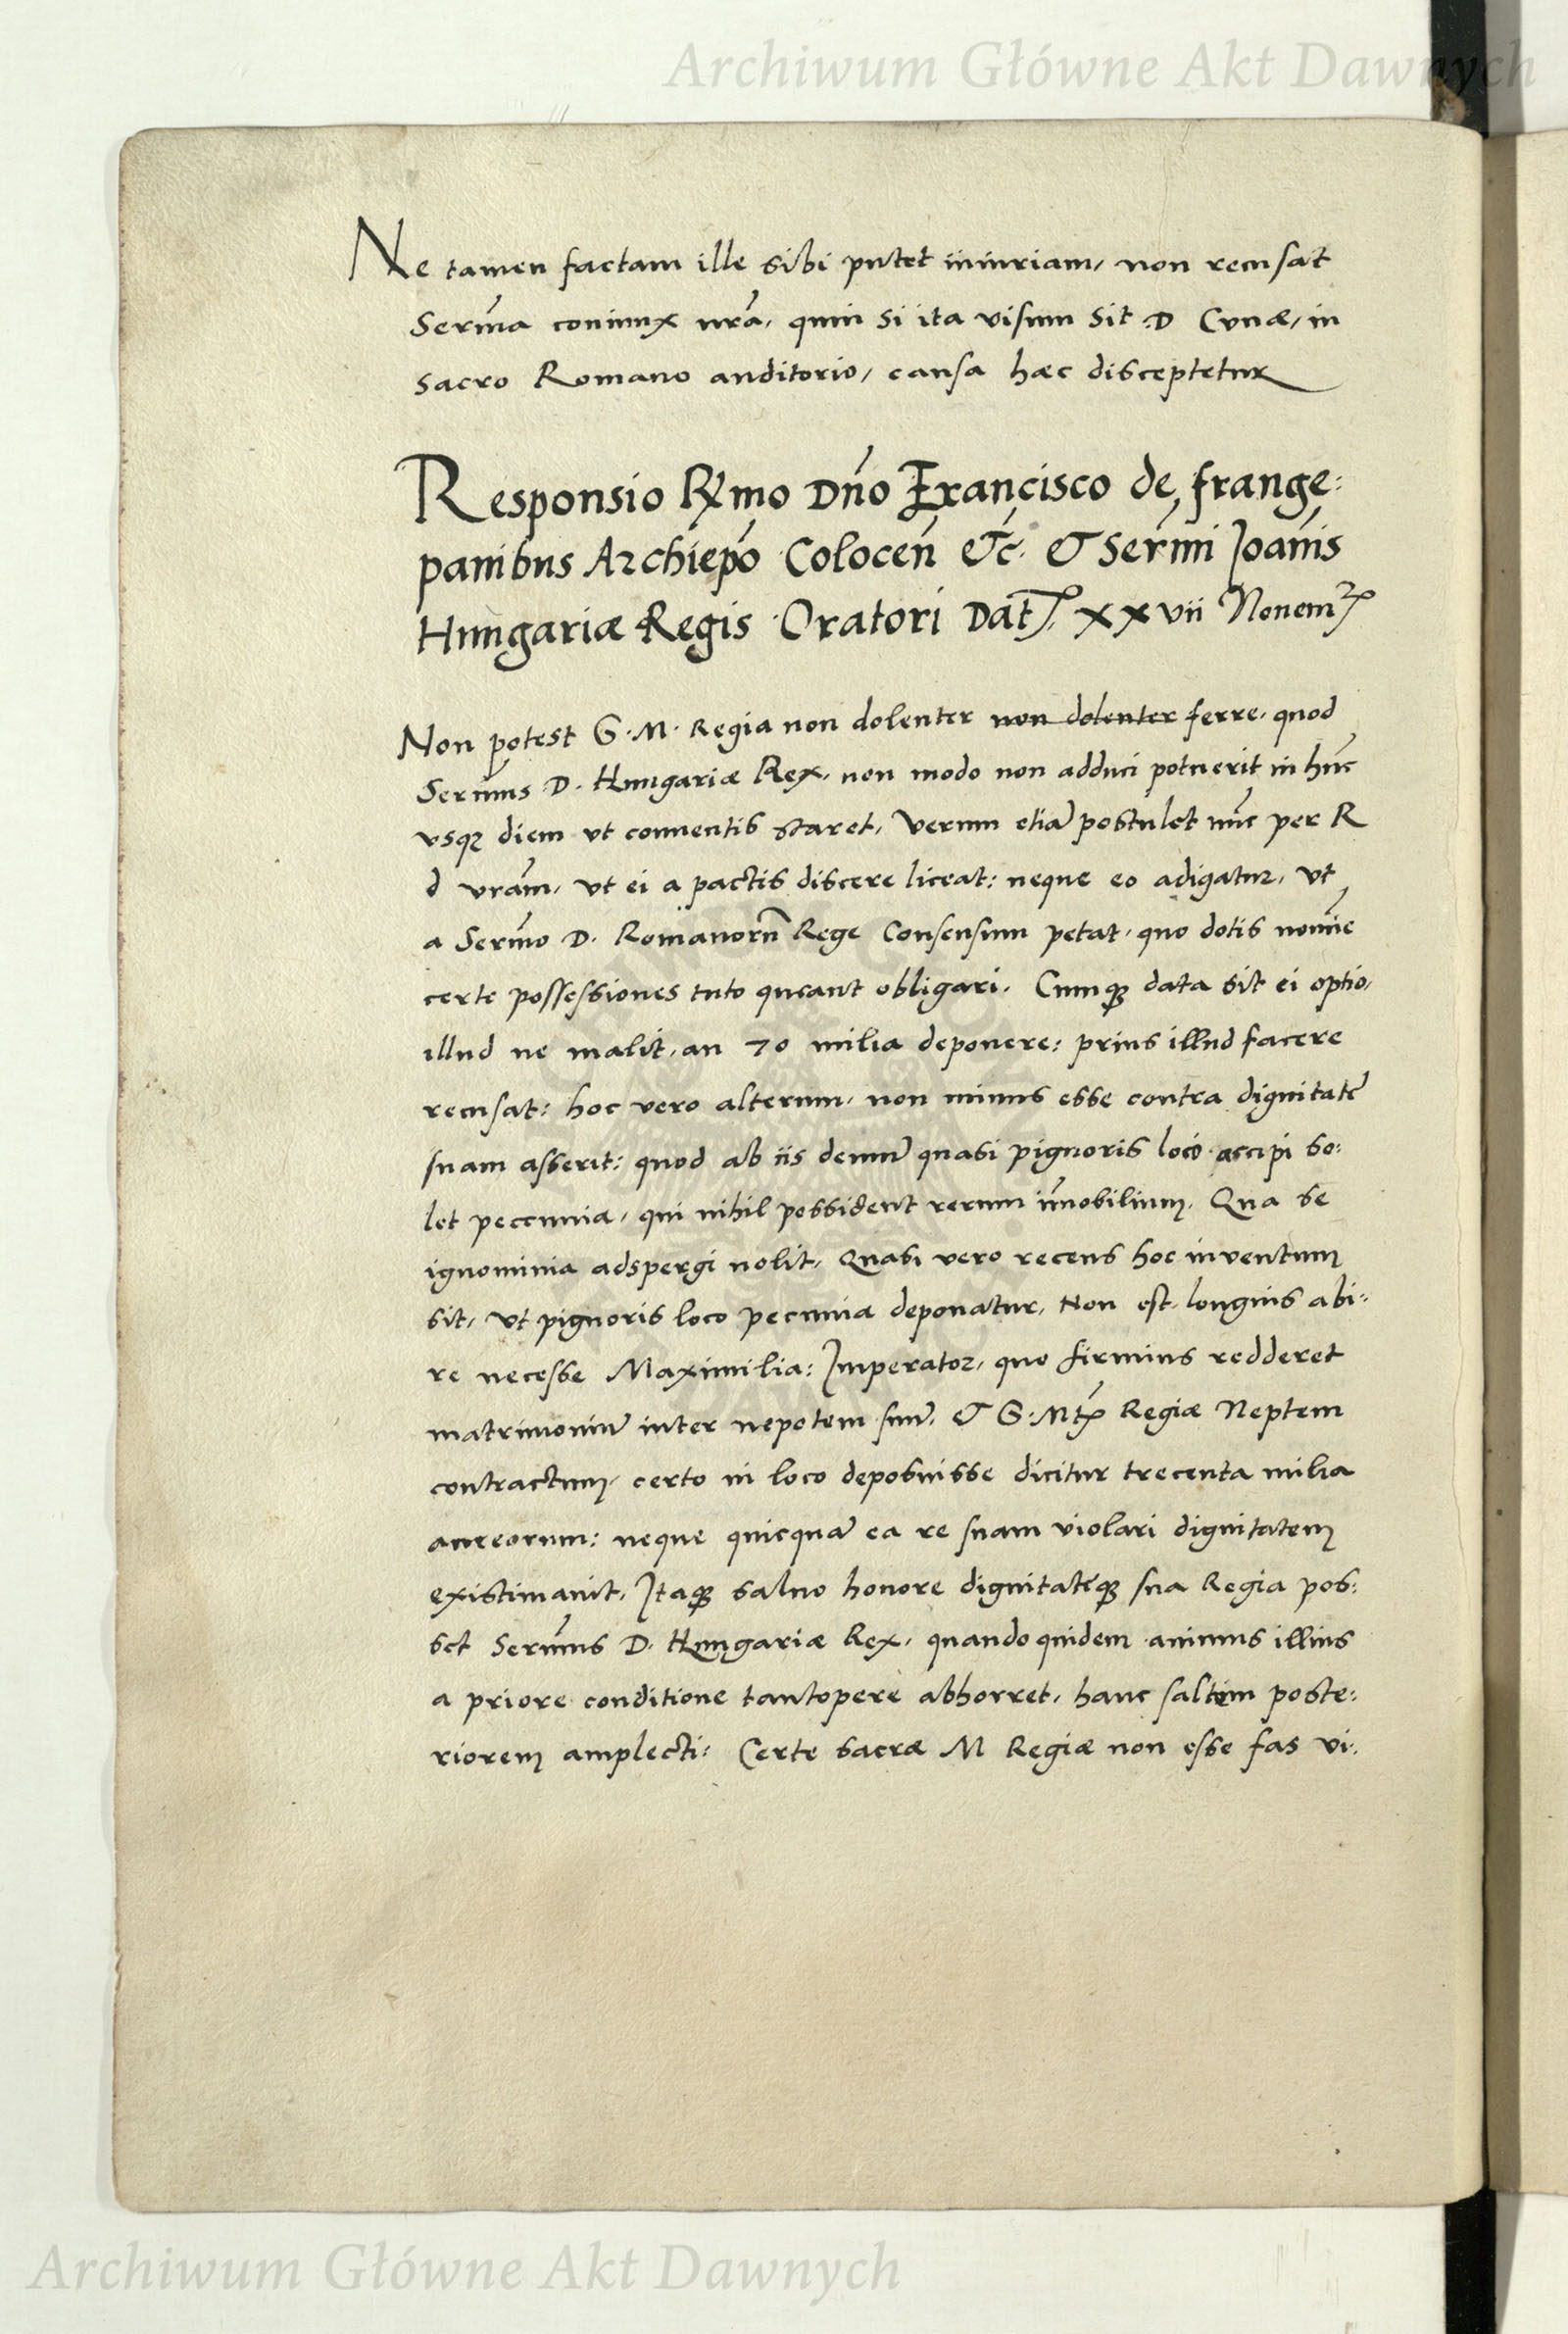 Archiwum Główne Akt Dawnych
Ne tamen factam ille sibi putet iniuriam, non recusat
Serma coniunx nra, quin si ita visum sit D Cynæ, in
sacro Romano auditorio, causa hæc disceptetur
Responsio Rmo Dno Francisco de frange:
panibus Archiepo Colocen etc. & Sermi Joannis
Hungariæ Regis Oratori Dat. xxvii Nouem
Non potest S. M. Regia non dolenter non dolenter ferre, quod
Sermus D. Hungariæ Rex, non modo non adduci potuerit in hunc
vsque diem vt conuentis staret, Verum etiā postulet nunc per R
d vram, vt ei a pactis discere liceat: neque eo adigatur, vt
a Sermo D. Romanorū Rege Consensum petat, quo dotis nomine
certe possessiones tuto queant obligari. Cumque data sit ei optio,
illud ne malit, an 70 milia deponere: prius illud facere
recusat: hoc vero alterum, non minus esse contra dignitatē
suam asserit: quod ab iis demum quasi pignoris loco accipi so:
let peccunia, qui nihil possident rerum imobilium. Qua se
ignominia adspergi nolit, Quasi vero recens hoc inventum
sit, vt pignoris loco pecunia deponatur, Non est longius abi:
re necesse Maximilia: Imperator, quo firmius redderet
matrimoniū inter nepotem suū, & S. Mtis Regiæ Neptem
contractum, certo in loco deposuisse dicitur trecenta milia
aureorum: neque quicquā ea re suam violari dignitatem
existimauit, Itaque saluo honore dignitatéque sua Regia pos:
set Sermus D. Hungariæ Rex, quando quidem animus illius
a priore conditione tantopere abhorret, hanc saltem poste:
riorem amplecti: Certe sacræ M Regiæ non esse fas vi:
Archiwum Główne Akt Dawnych